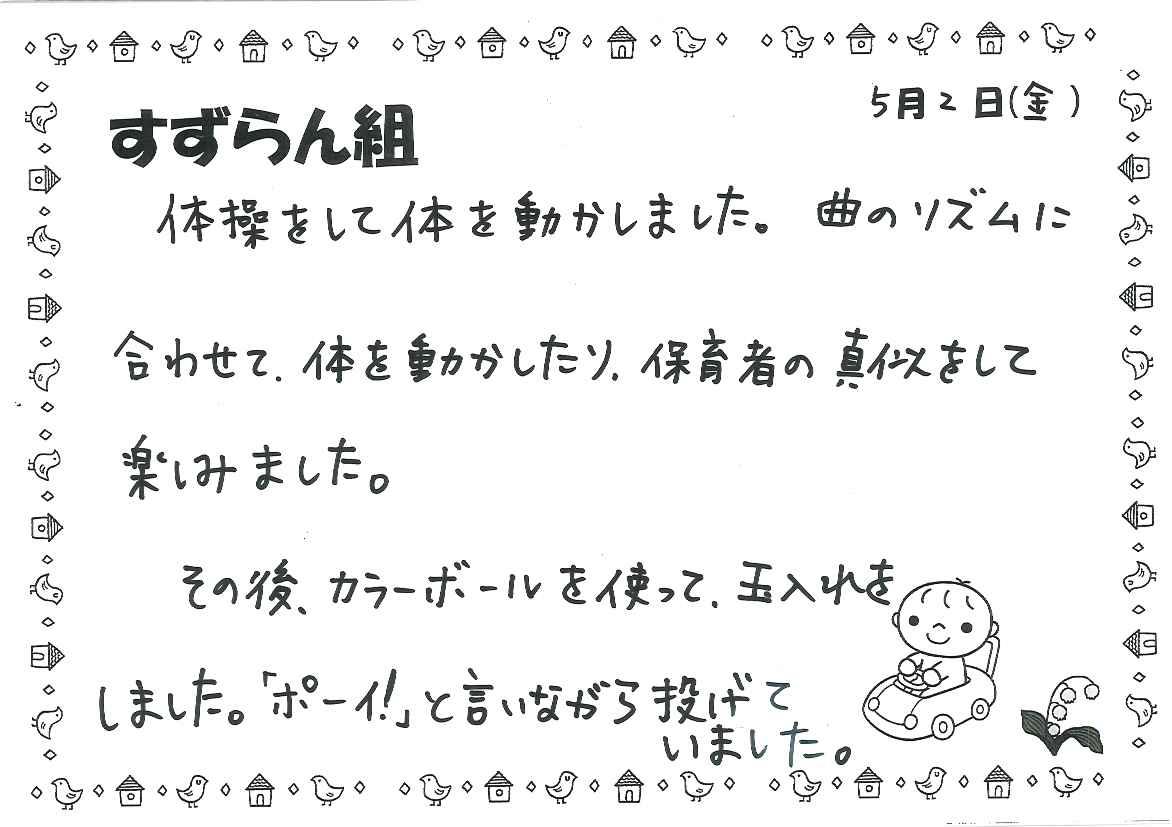 5月2日(金)
すずらん組
体操をして体を動かしました。曲のリズムに
合わせて、体を動かしたり、保育者の真似をして
楽しみました。
その後、カラーボールを使って、玉入れを
しました。「ポーイ!」と言いながら投げて
いました。